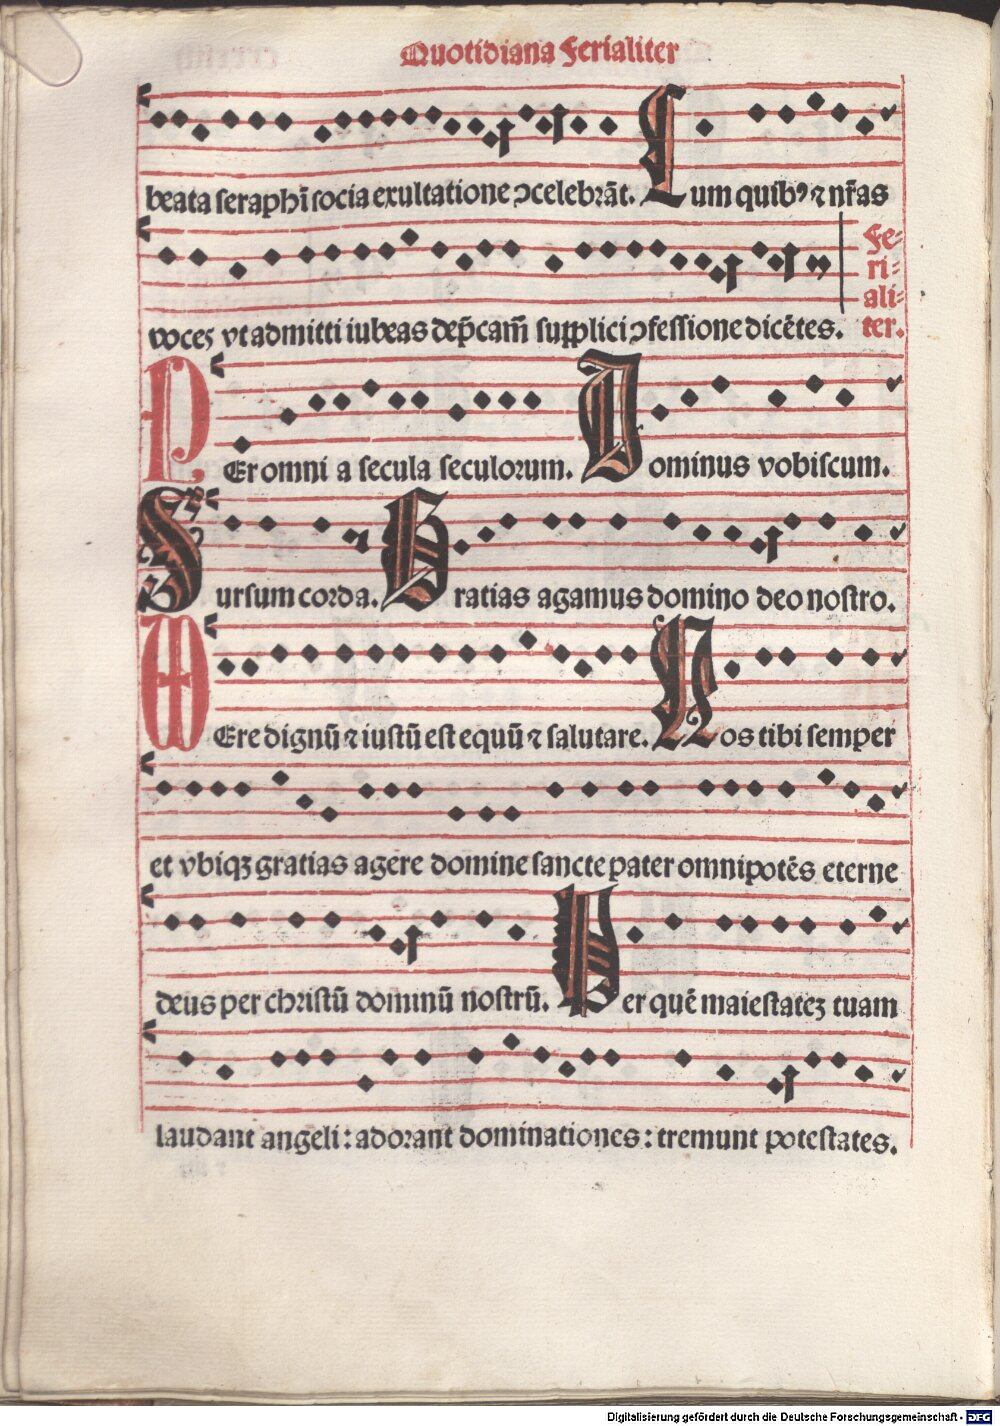 Quotidiana Ferialiter
beata seraphī socia exultatione ↄcelebrāt. Cum quibꝰ ⁊ nr̄as
voces vt admitti iubeas dep̄cam̄ supplici ↄfessione dicētes.
Fe-
ri-
ali-
ter.
PEr omni a secula seculorum. Dominus vobiscum.
Sursum corda. Gratias agamus domino deo nostro.
VEre dignū ⁊ iustū est equū ⁊ salutare. Nos tibi semper
et vbiqꝫ gratias agere domine sancte pater omnipotēs eterne
deus per christū dominū nostrū. Per quē maiestateꝫ tuam
laudant angeli: adorant dominationes: tremunt potestates.
Digitalisierung gefördert durch die Deutsche Forschungsgemeinschaft - DFG